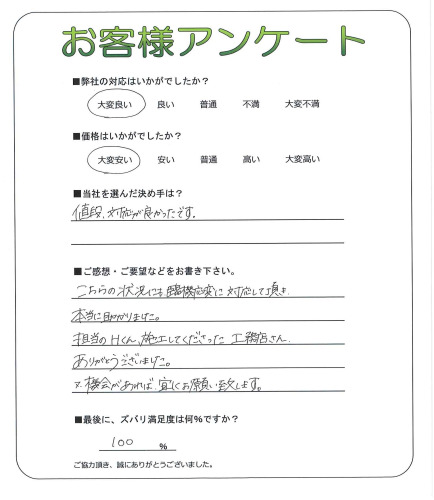 お客様アンケート
■弊社の対応はいかがでしたか？
大変良い 良い 普通 不満 大変不満
■価格はいかがでしたか？
大変安い 安い 普通 高い 大変高い
■当社を選んだ決め手は？
値段、対応が良かったです。
■ご感想・ご要望などをお書き下さい。
こちらの状況にも臨機応変に対応して頂き、
本当に助かりました。
担当のHくん、施工してくださった工務店さん、
ありがとうございました。
又、機会があれば、宜しくお願い致します。
■最後に、ズバリ満足度は何%ですか？
100 %
ご協力頂き、誠にありがとうございました。